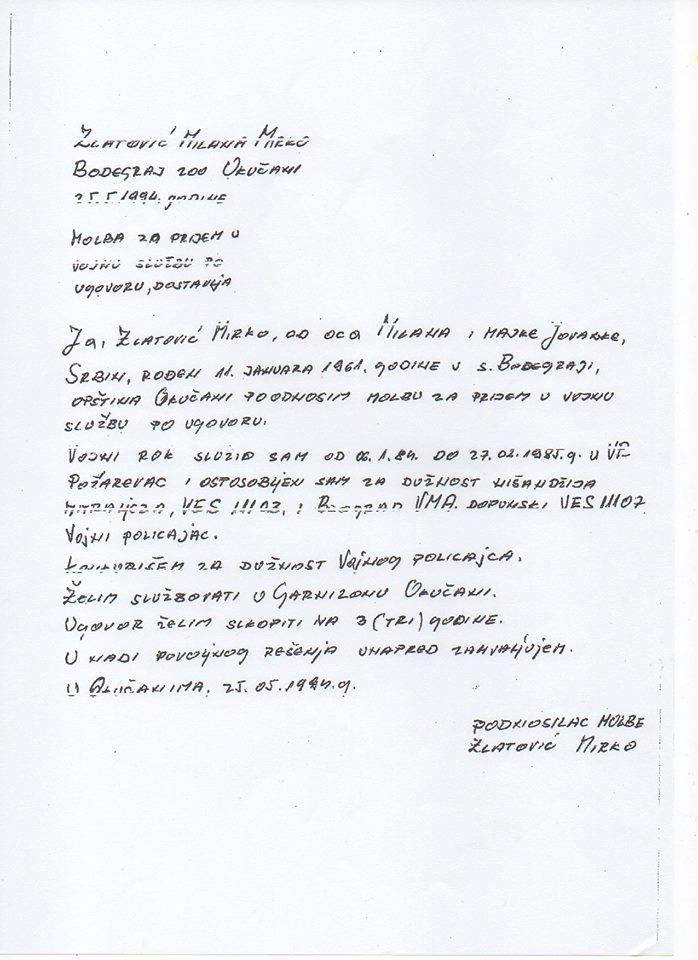 Zlatović Milana Mirko
Bodegraj 200 Okučani
25.5.1994. godine
Molba za prijem u
vojnu službu po
ugovoru, dostavlja
Ja, Zlatović Mirko, od oca Milana i majke Jovanke,
Srbin, rođen 11. januara 1961. godine u s. Bodegraji,
opština Okučani poodnosim molbu za prijem u vojnu
službu po ugovoru.
Vojni rok služio sam od 06.1.84. do 27.02.1985.g. u
Požarevac i osposobljen sam za dužnost nišandžija
VES 11103, i Beograd VMA. dopunski VES 11107
Vojni policajac.
Konkurišem za dužnost Vojnog policajca.
Želim službovati u Garnizonu Okučani.
Ugovor želim sklopiti na 3 (tri) godine.
U nadi povoljnog rešenja unapred zahvaljujem.
U Okučanima, 25.05.1994.g.
Podnosilac molbe
Zlatović Mirko